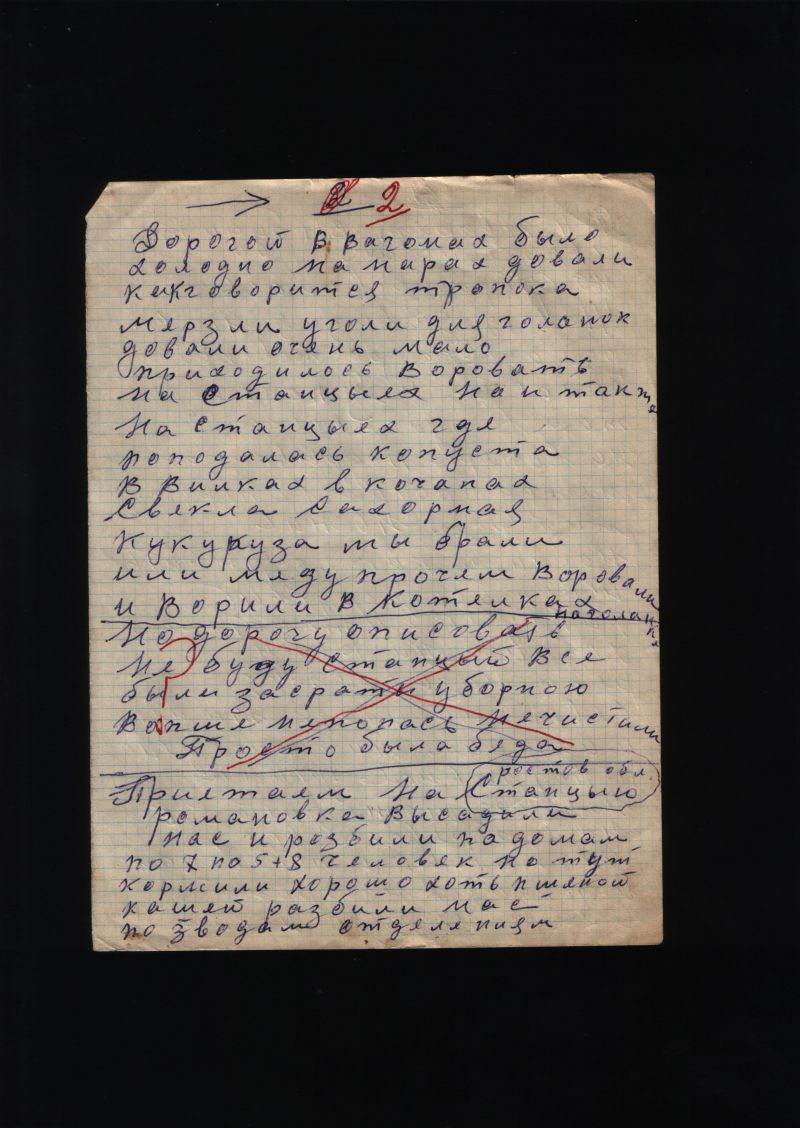 → 2 2
Дорогой в вагонах было
холодно на нарах довали
какговорится тропока
мерзли уголи для голанок
довали очень мало
приходилось воровать
на станцыях но и также
на станцыях где
поподалась копуста
в вилках в кочанах
свекла сахорная
кукуруза мы брали
или межу прочем воровали
и ворили в котелках
наголанке
но дорогу описовать
не буду станцый все
были засраты уборною
вопше непопась нечистили
просто была беда
Приетаем на станцыю
ростов обл.
романовка высадили
нас и розбили по домам
по 7 по 5 + 8 человек но тут
кормили хорошо хоть пшеной
кашей разбили нас
по зводам отделениям